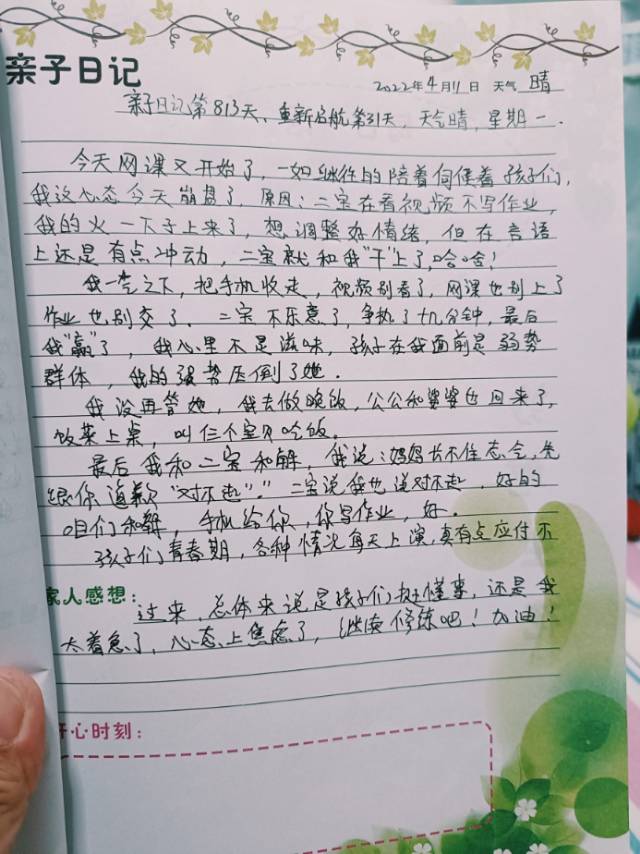 亲子日记
2022年4月11日 天气 晴
亲子日记第813天、重新启航第31天，天气晴，星期一.
今天网课又开始了，一如继往的陪着伺候着孩子们，
我这心态今天崩盘了，原因：二宝在看视频不写作业，
我的火一下子上来了，想调整好情绪，但在言语
上还是有点冲动，二宝就和我"干"上了，哈哈！
我一怒之下，把手机收走，视频别看了，网课也别上了
作业也别交了．二宝不乐意了，争执了十几分钟，最后
我"赢"了，我心里不是滋味，孩子在我面前是弱势
群体，我的强势压倒了她．
我没再管她，我去做晚饭，公公和婆婆也回来了，
饭菜上桌，叫仨个宝贝吃饭。
最后我和二宝和解，我说：妈妈压不住态令，先
跟你道歉"对不起"。"二宝说我也说对不起，好的
咱们和解，手机给你，你写作业，好．
孩子们青春期，各种情况每天上演，真有点应付不
家人感想：
过来，总体来说是孩子们挺懂事，还是我
太着急了，心态上焦虑了，继续修练吧！加油！
开心时刻：